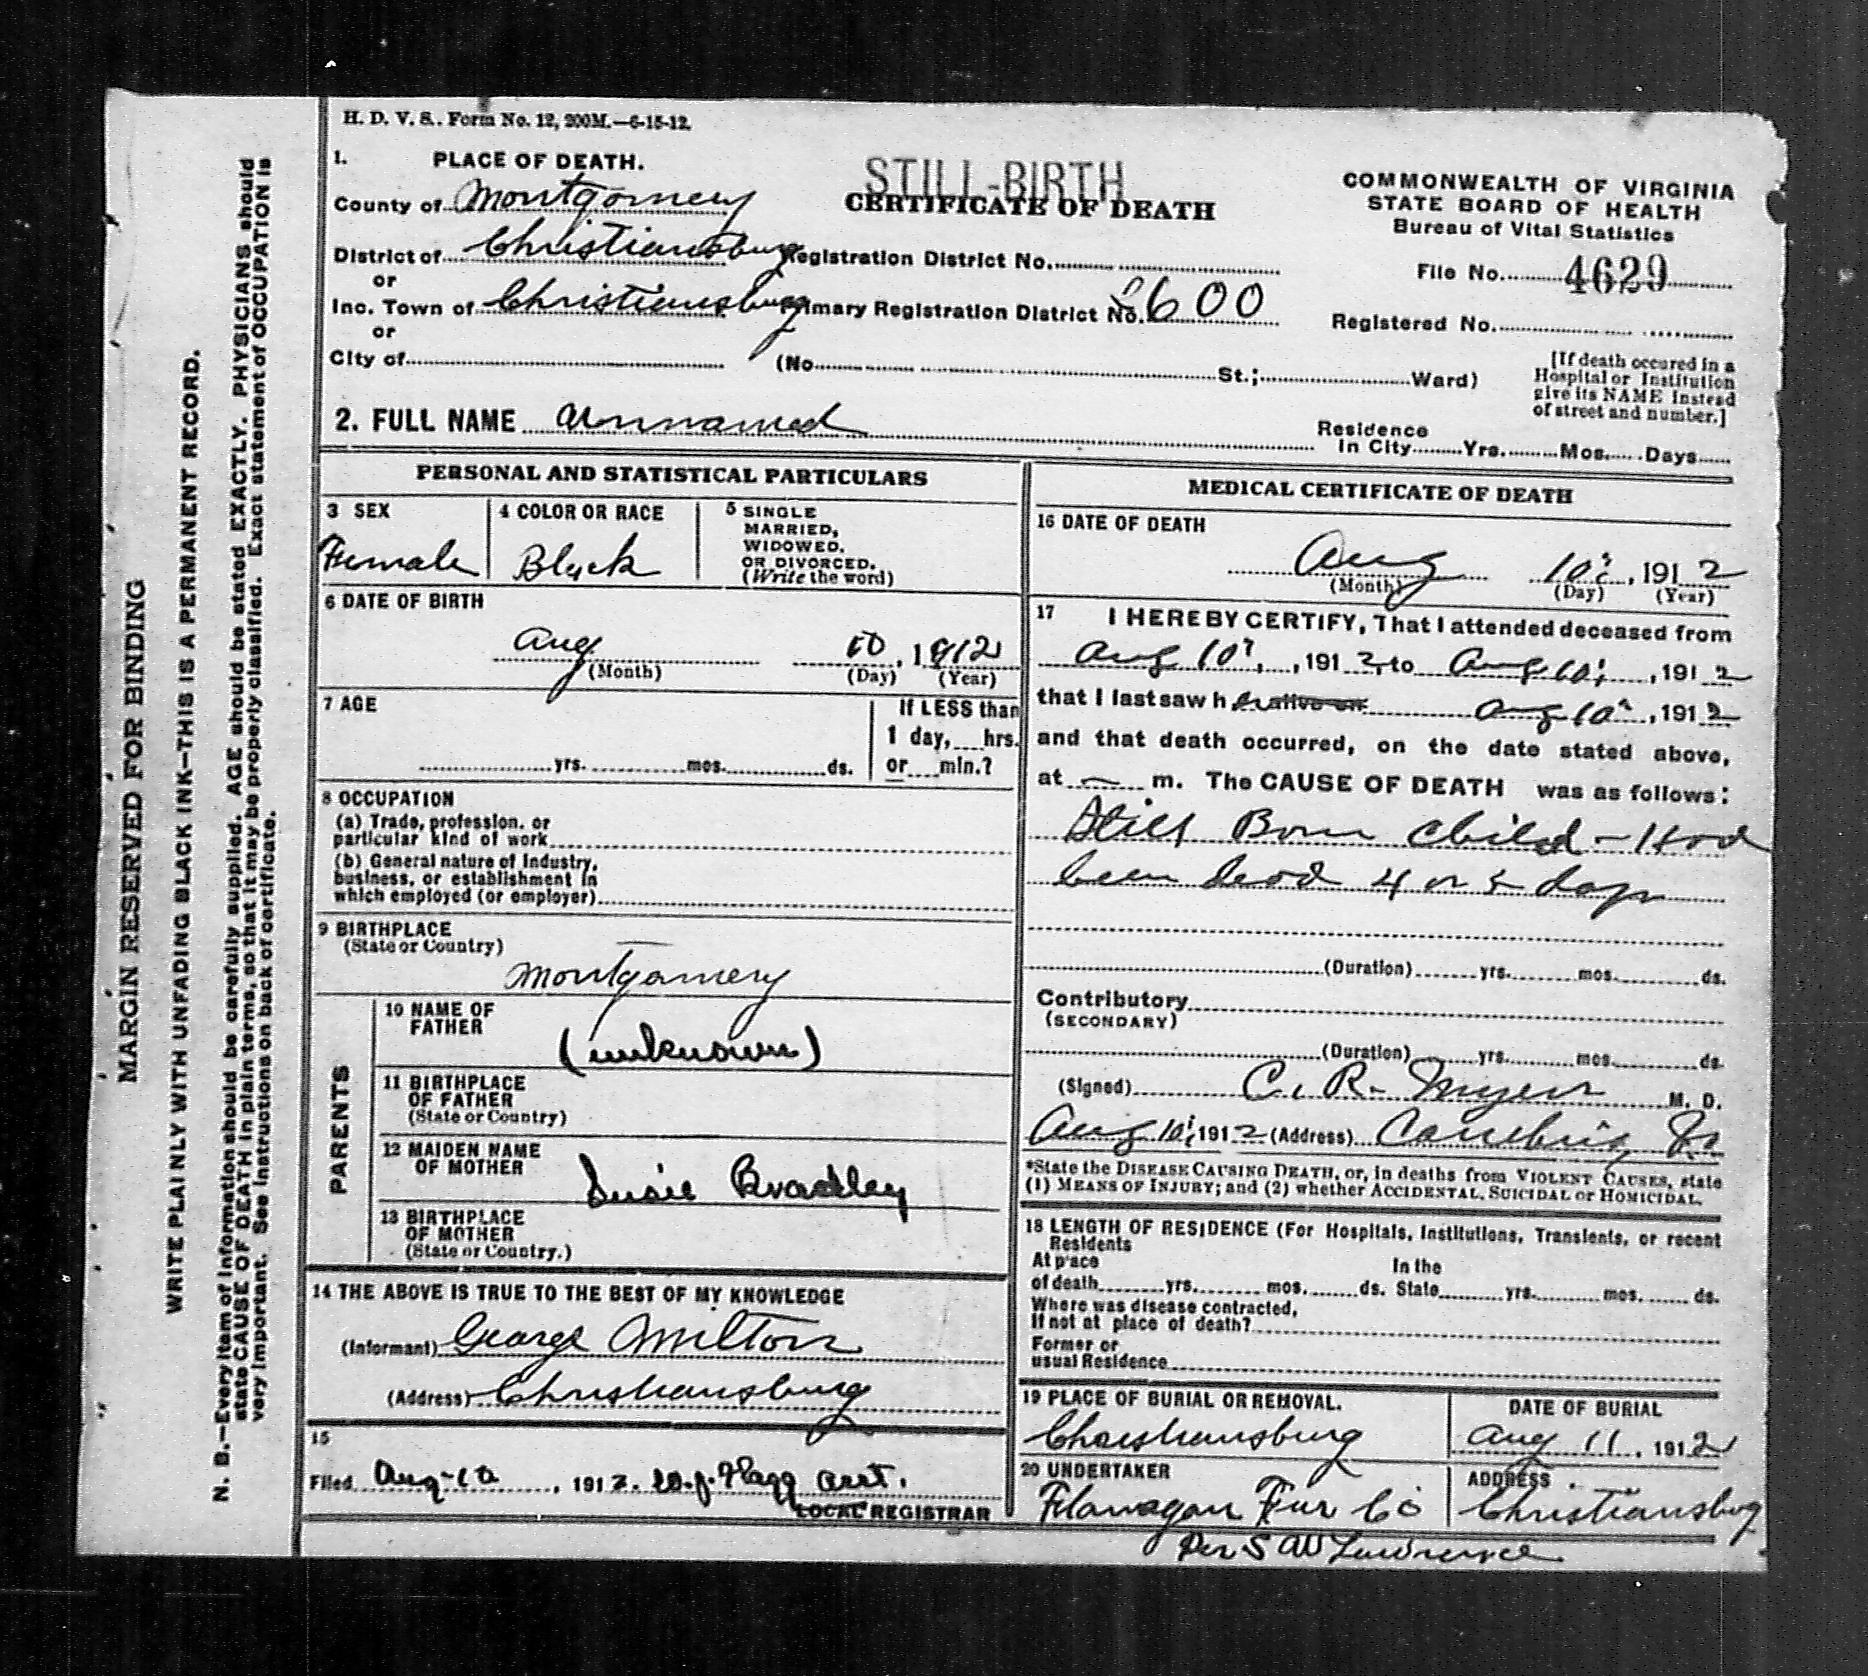 H. D. V. S. Form No. 12, 200M.—6-15-12.
1. PLACE OF DEATH.
STILL-BIRTH
CERTIFICATE OF DEATH
COMMONWEALTH OF VIRGINIA
STATE BOARD OF HEALTH
Bureau of Vital Statistics
County of Montgomery
District of Christiansburg Registration District No.
File No. 4629
or
Inc. Town of Christiansburg Primary Registration District No. 2600
Registered No.
or
City of (No. St.; Ward)
[If death occured in a
Hospital or Institution
give its NAME instead
of street and number.]
2. FULL NAME Unnamed
Residence
In City Yrs. Mos. Days
PERSONAL AND STATISTICAL PARTICULARS
3 SEX
Female
4 COLOR OR RACE
Black
5 SINGLE
MARRIED,
WIDOWED,
OR DIVORCED.
(Write the word)
6 DATE OF BIRTH
Aug 10, 1912
(Month) (Day) (Year)
7 AGE
If LESS than
1 day, hrs.
yrs. mos. ds. or min.?
8 OCCUPATION
(a) Trade, profession. or
particular kind of work
(b) General nature of Industry,
business, or establishment in
which employed (or employer)
9 BIRTHPLACE
(State or Country)
Montgomery
PARENTS
10 NAME OF
FATHER
(unknown)
11 BIRTHPLACE
OF FATHER
(State or Country)
12 MAIDEN NAME
OF MOTHER
Susie Bradley
13 BIRTHPLACE
OF MOTHER
(State or Country.)
14 THE ABOVE IS TRUE TO THE BEST OF MY KNOWLEDGE
(Informant) George Milton
(Address) Christiansburg
15
Filed Aug-10, 1912.
LOCAL REGISTRAR
MEDICAL CERTIFICATE OF DEATH
16 DATE OF DEATH
Aug 10, 1912
(Month) (Day) (Year)
17 I HEREBY CERTIFY, That I attended deceased from
Aug 10, 1912, to Aug 10, 1912
that I last saw h er alive on Aug 10, 1912
and that death occurred, on the date stated above,
at — m. The CAUSE OF DEATH was as follows:
Still Born child - Had
been dead 4 or 5 days
(Duration) yrs. mos. ds.
Contributory
(SECONDARY)
(Duration) yrs. mos. ds.
(Signed) C. R. M. D.
Aug 10, 1912 (Address)
*State the DISEASE CAUSING DEATH, or, in deaths from VIOLENT CAUSES, state
(1) MEANS OF INJURY; and (2) whether ACCIDENTAL, SUICIDAL or HOMICIDAL.
18 LENGTH OF RESIDENCE (For Hospitals, Institutions, Transients, or recent
Residents
At place In the
of death yrs. mos. ds. State yrs. mos. ds.
Where was disease contracted,
If not at place of death?
Former or
usual Residence
19 PLACE OF BURIAL OR REMOVAL.
Christiansburg
DATE OF BURIAL
Aug 11, 1912
20 UNDERTAKER
Flanagan Fur Co
ADDRESS
Christiansburg
Per S W Lawrence
MARGIN RESERVED FOR BINDING
WRITE PLAINLY WITH UNFADING BLACK INK—THIS IS A PERMANENT RECORD.
N. B.—Every item of information should be carefully supplied. AGE should be stated EXACTLY. PHYSICIANS should
state CAUSE OF DEATH in plain terms, so that it may be properly classified. Exact statement of OCCUPATION is
very important. See instructions on back of certificate.